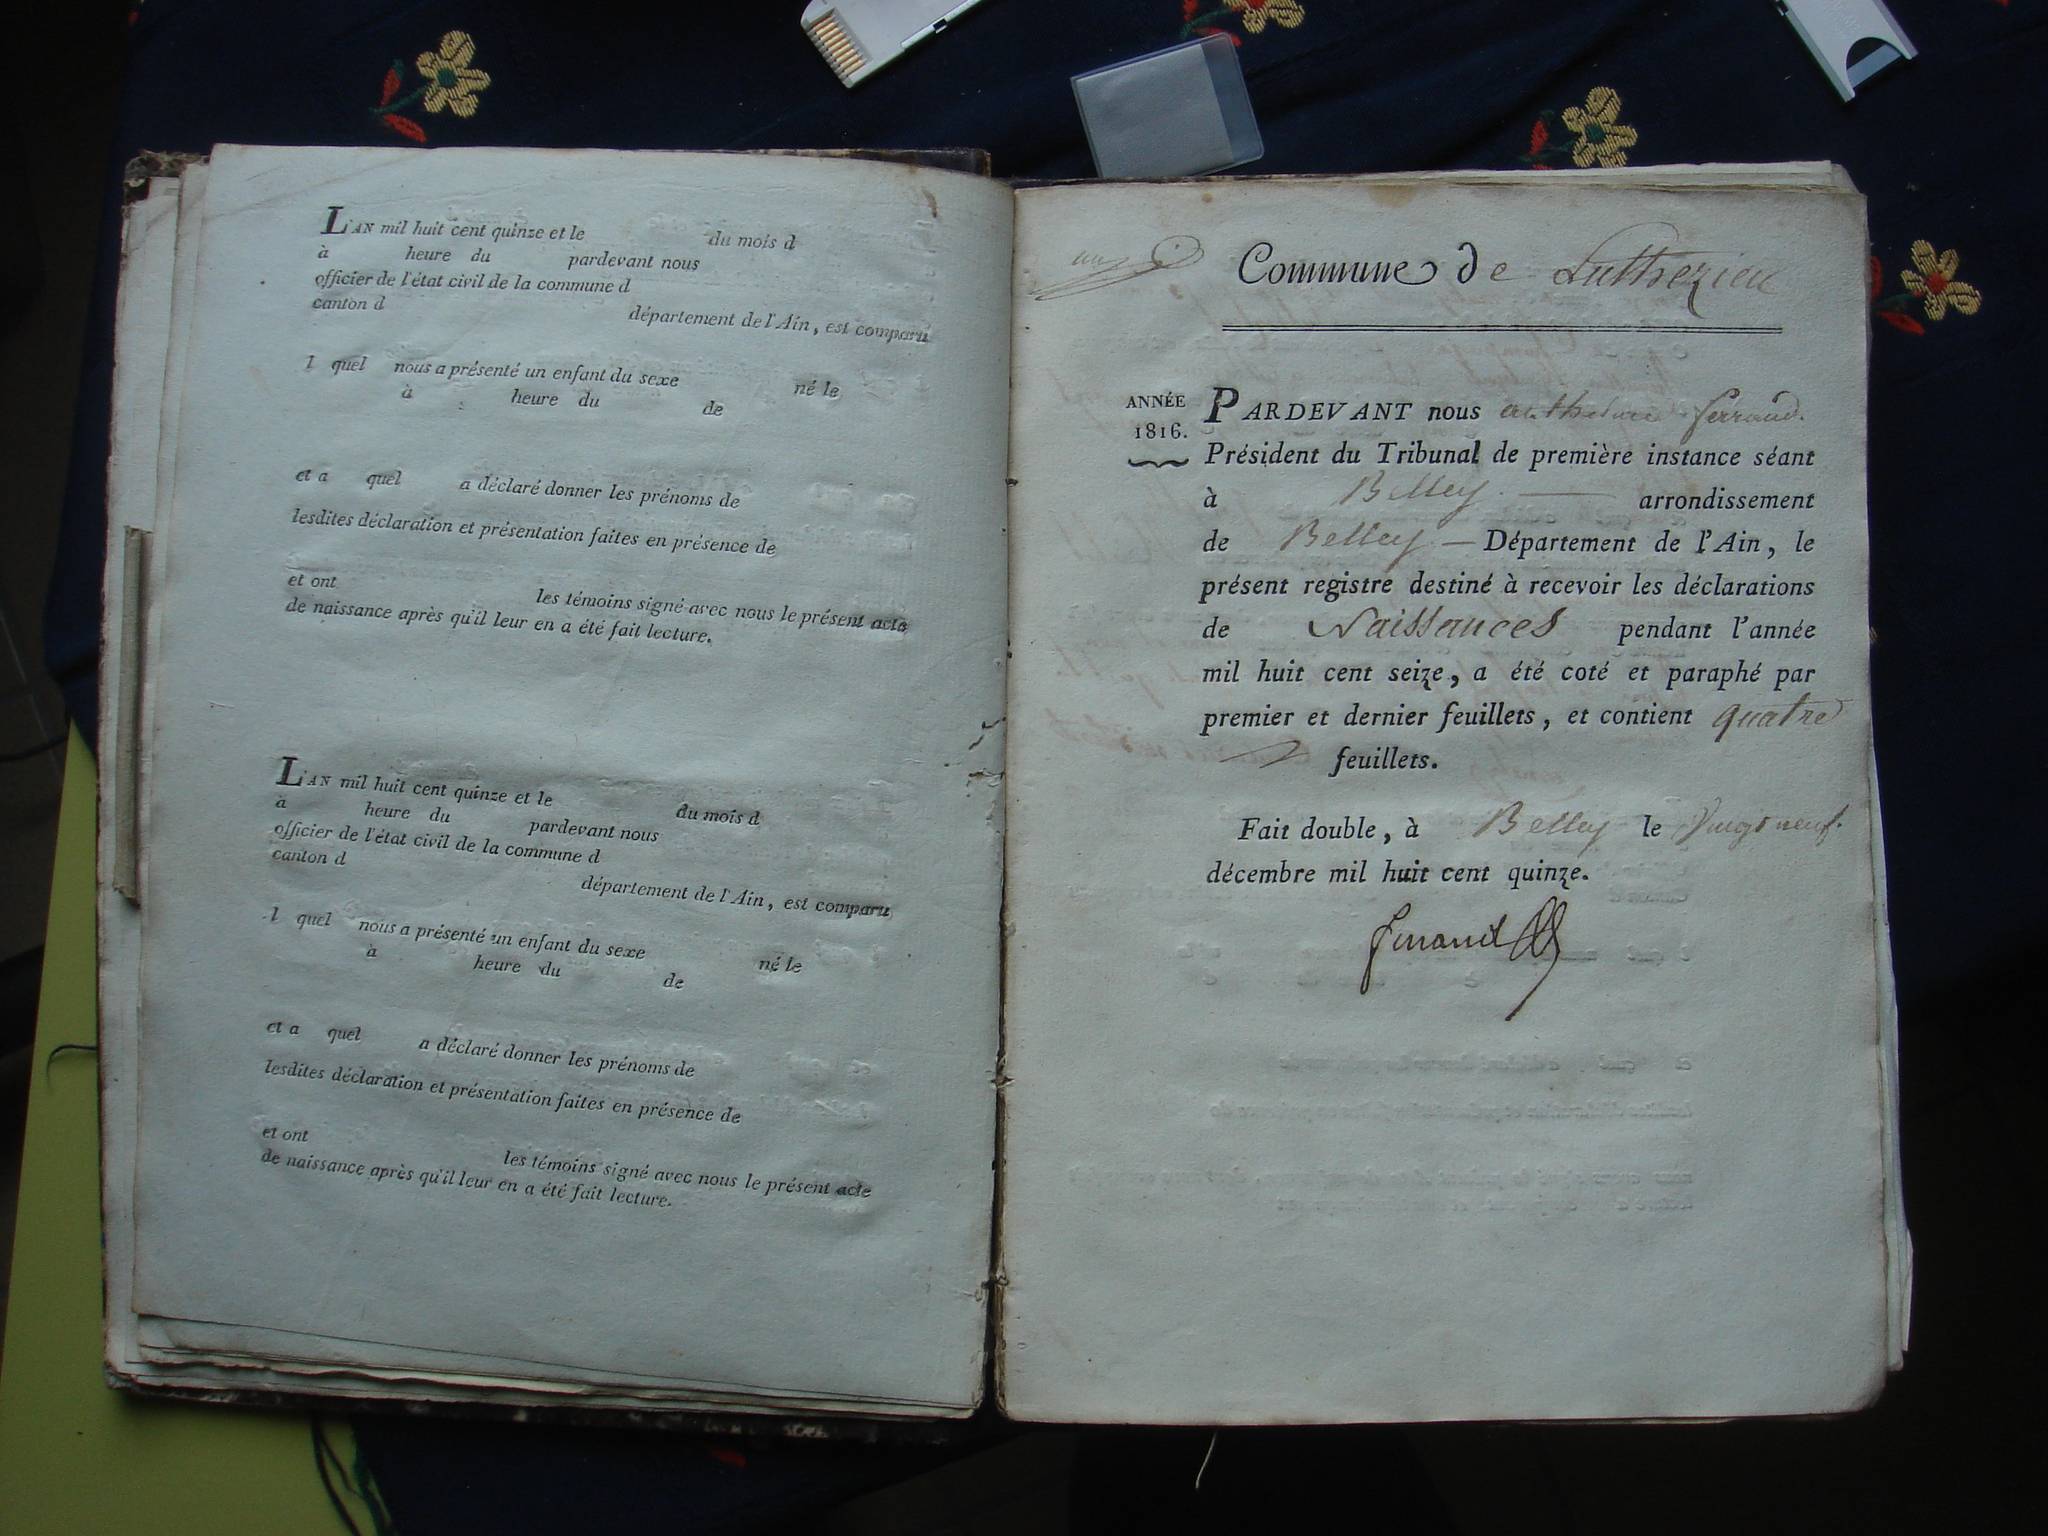 L'AN mil huit cent quinze et le du mois d
à heure du pardevant nous
officier de l'état civil de la commune d
canton d département de l'Ain, est comparu
l quel nous a présenté un enfant du sexe né le
à heure du de
et a quel a déclaré donner les prénoms de
lesdites déclaration et présentation faites en présence de
et ont les témoins signé avec nous le présent acte
de naissance après qu'il leur en a été fait lecture.
L'AN mil huit cent quinze et le du mois d
à heure du pardevant nous
officier de l'état civil de la commune d
canton d département de l'Ain, est comparu
l quel nous a présenté un enfant du sexe né le
à heure du de
et a quel a déclaré donner les prénoms de
lesdites déclaration et présentation faites en présence de
et ont les témoins signé avec nous le présent acte
de naissance après qu'il leur en a été fait lecture.
Commune de Luthezieu
ANNÉE
1816.
PARDEVANT nous anthelme ferrand.
Président du Tribunal de première instance séant
à Belley — arrondissement
de Belley — Département de l'Ain, le
présent registre destiné à recevoir les déclarations
de Naissances pendant l'année
mil huit cent seize, a été coté et paraphé par
premier et dernier feuillets, et contient quatre
feuillets.
Fait double, à Belley le vingt neuf.
décembre mil huit cent quinze.
ferrand